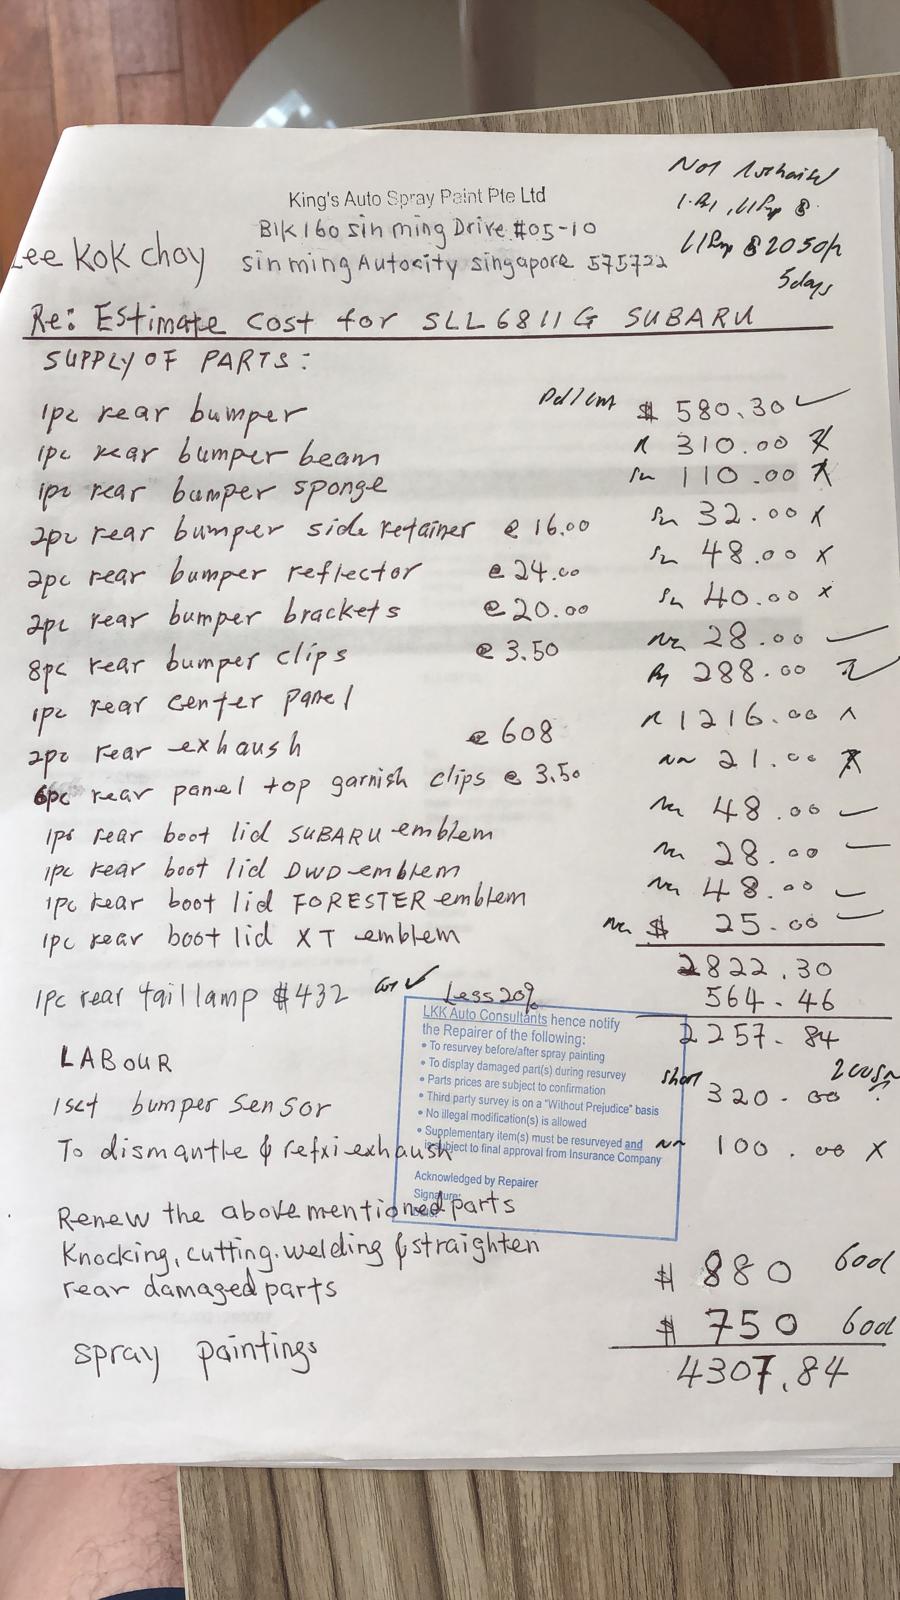 King's Auto Spray Paint Pte Ltd
Blk 160 sin ming Drive #05-10
sin ming Autocity singapore 575722
Lee Kok choy
Not
5days
Re: Estimate cost for SLL6811G SUBARU
SUPPLY OF PARTS:
1pc rear bumper $ 580.30 ✓
1pc rear bumper beam 310.00 X
1pc rear bumper sponge 110.00 X
2pc rear bumper side retainer @ 16.00 32.00 X
2pc rear bumper reflector @ 24.00 48.00 X
2pc rear bumper brackets @ 20.00 40.00 X
8pc rear bumper clips @ 3.50 28.00
1pc rear center panel 288.00
2pc rear exhaush @ 608 1216.00
6pc rear panel top garnish clips @ 3.50 21.00 X
1pc rear boot lid SUBARU emblem 48.00
1pc rear boot lid DWD emblem 28.00
1pc rear boot lid FORESTER emblem 48.00
1pc rear boot lid XT emblem $ 25.00
2822.30
1pc rear taillamp $432 ✓ Less 20% 564.46
2257.84
LKK Auto Consultants hence notify
the Repairer of the following:
• To resurvey before/after spray painting
• To display damaged part(s) during resurvey
• Parts prices are subject to confirmation
• Third party survey is on a "Without Prejudice" basis
• No illegal modification(s) is allowed
• Supplementary item(s) must be resurveyed and
is subject to final approval from Insurance Company
Acknowledged by Repairer
Signature:
LABOUR
1set bumper sensor short 320.00
To dismantle & refxi exhaush 100.00 X
Renew the abovementioned parts
Knocking, cutting. welding & straighten
rear damaged parts $ 880
spray paintings $ 750
4307.84